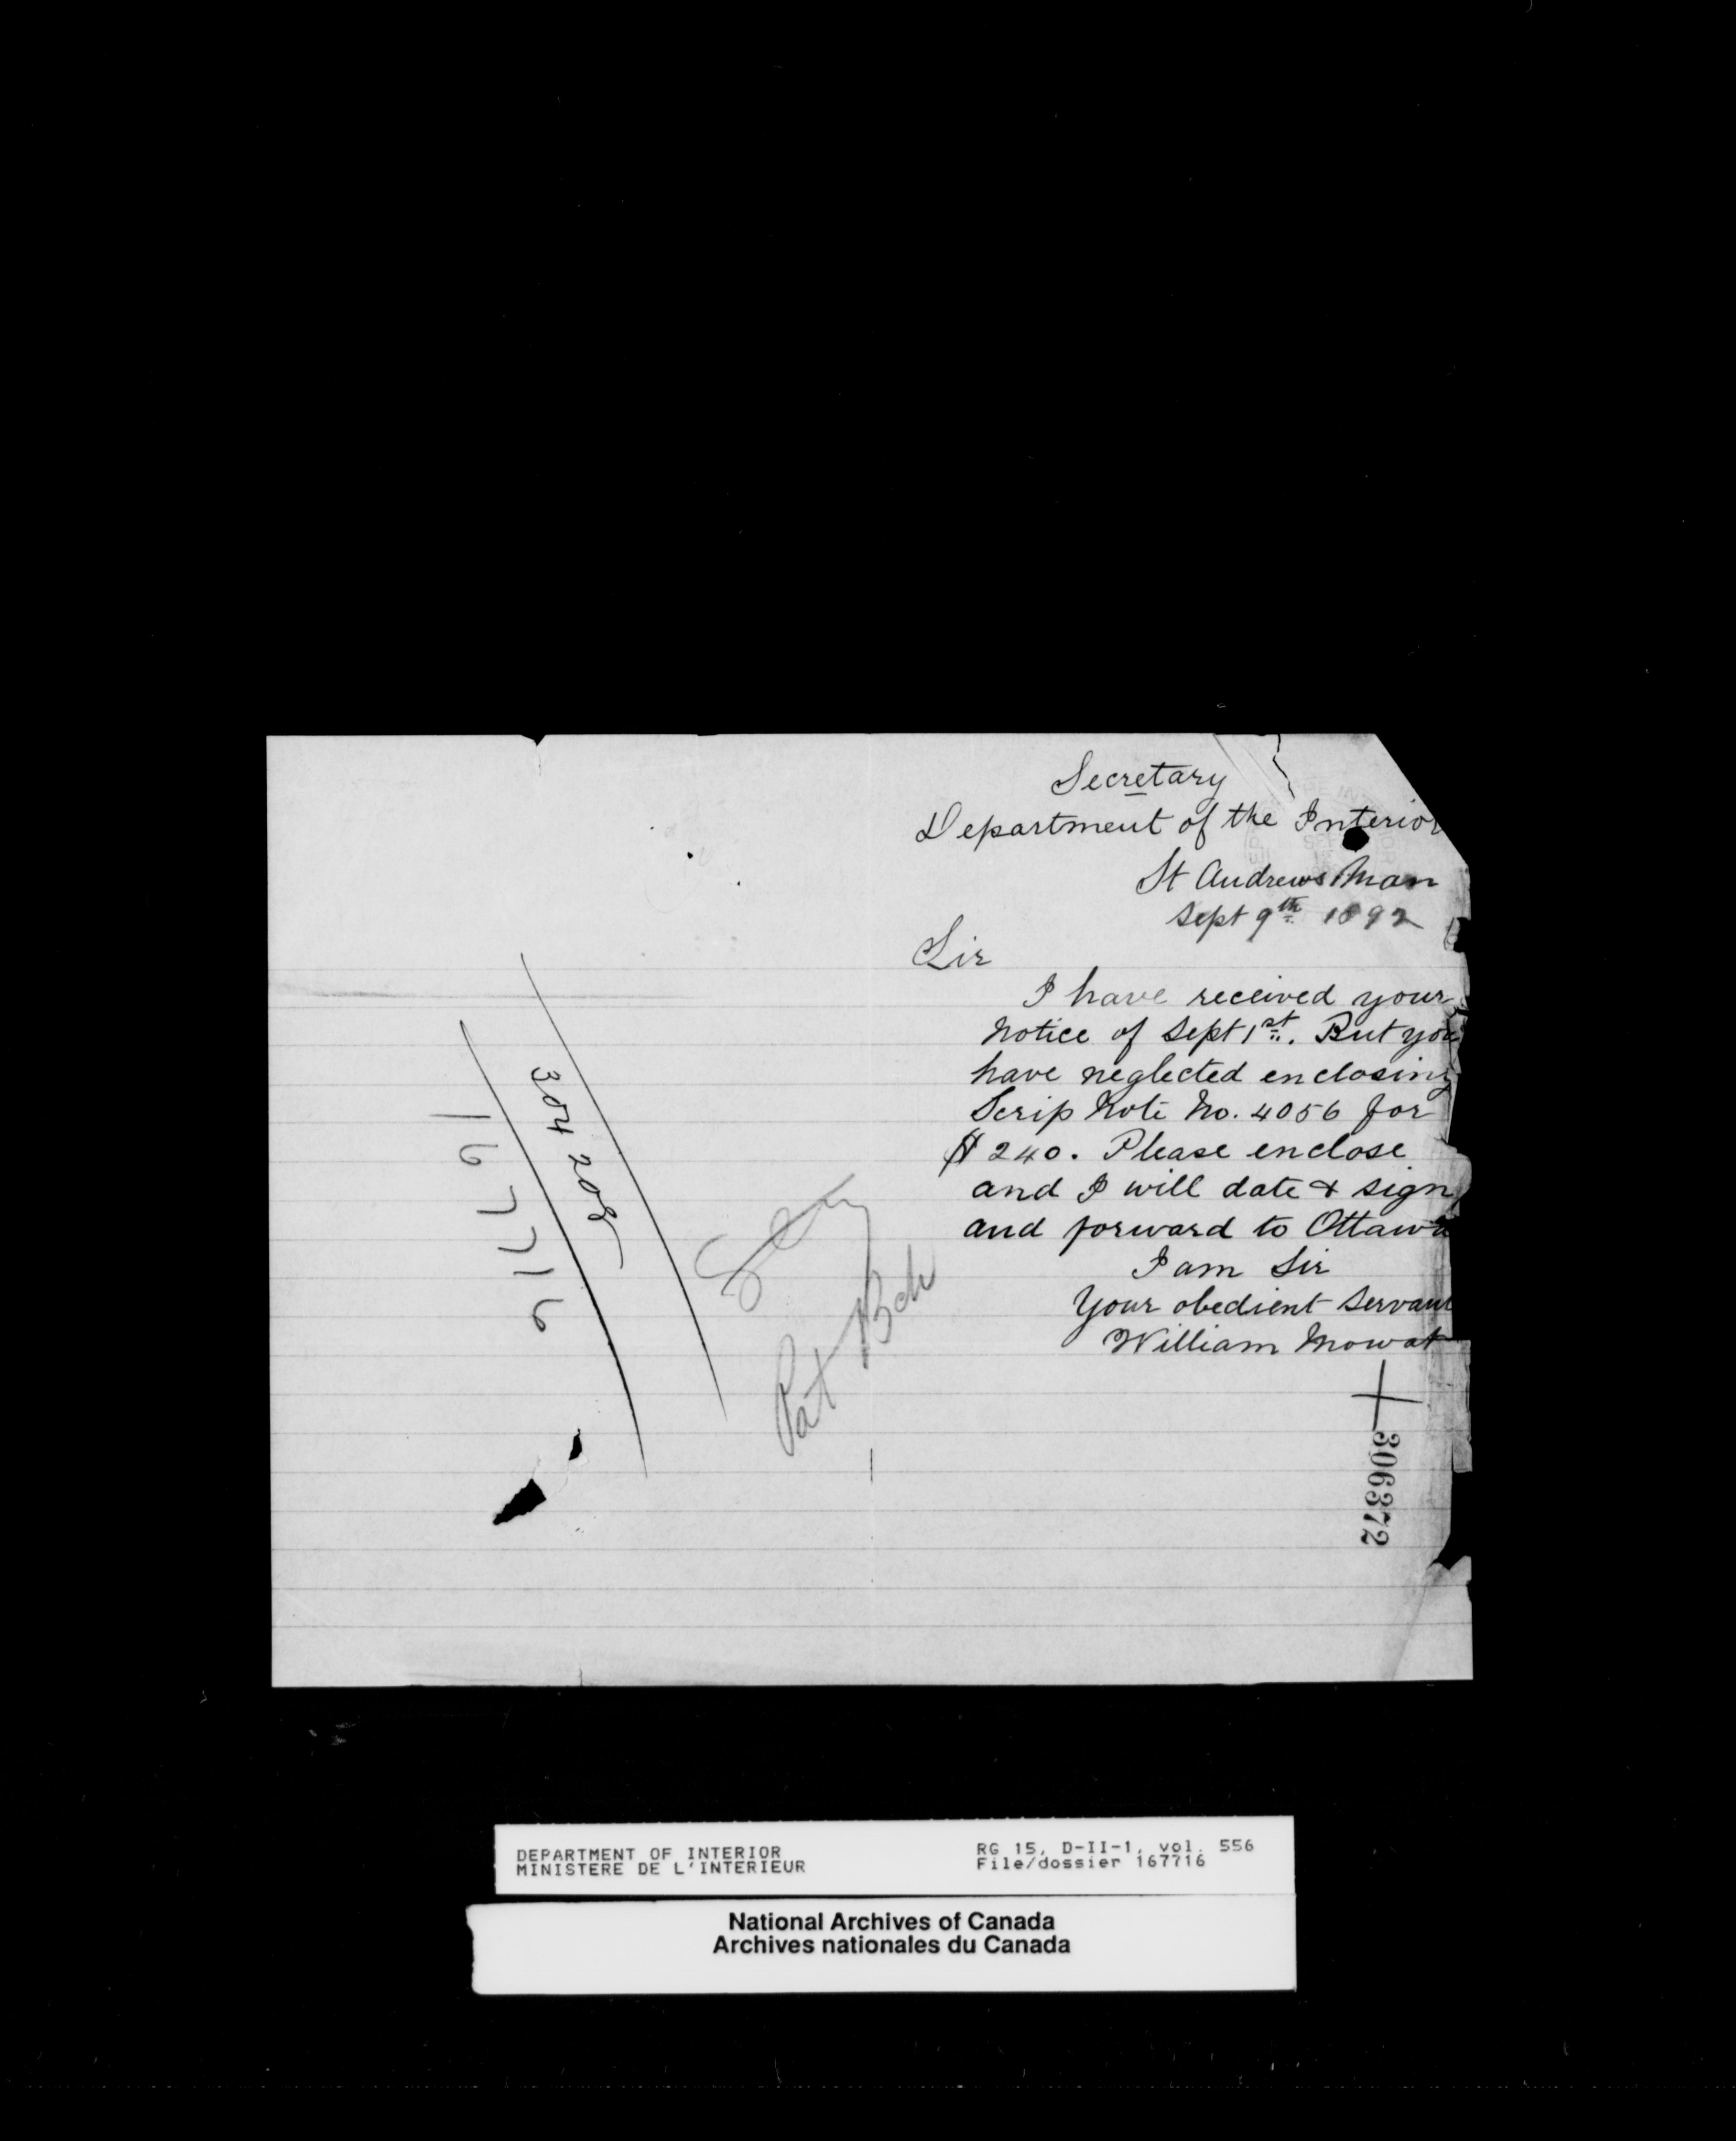 Secretary
Department of the Interior
St Andrews Man
Sept 9th 1892
Sir
I have received your
Notice of Sept 1st. But you
have neglected enclosing
Scrip Note No. 4056 for
$240. Please enclose
and I will date & sign
and forward to Ottawa
I am Sir
Your obedient Servant
William Mowat
306372
304208
167716
Pat Bch
DEPARTMENT OF INTERIOR
MINISTERE DE L'INTERIEUR
RG 15, D-II-1, vol. 556
File/dossier 167716
National Archives of Canada
Archives nationales du Canada